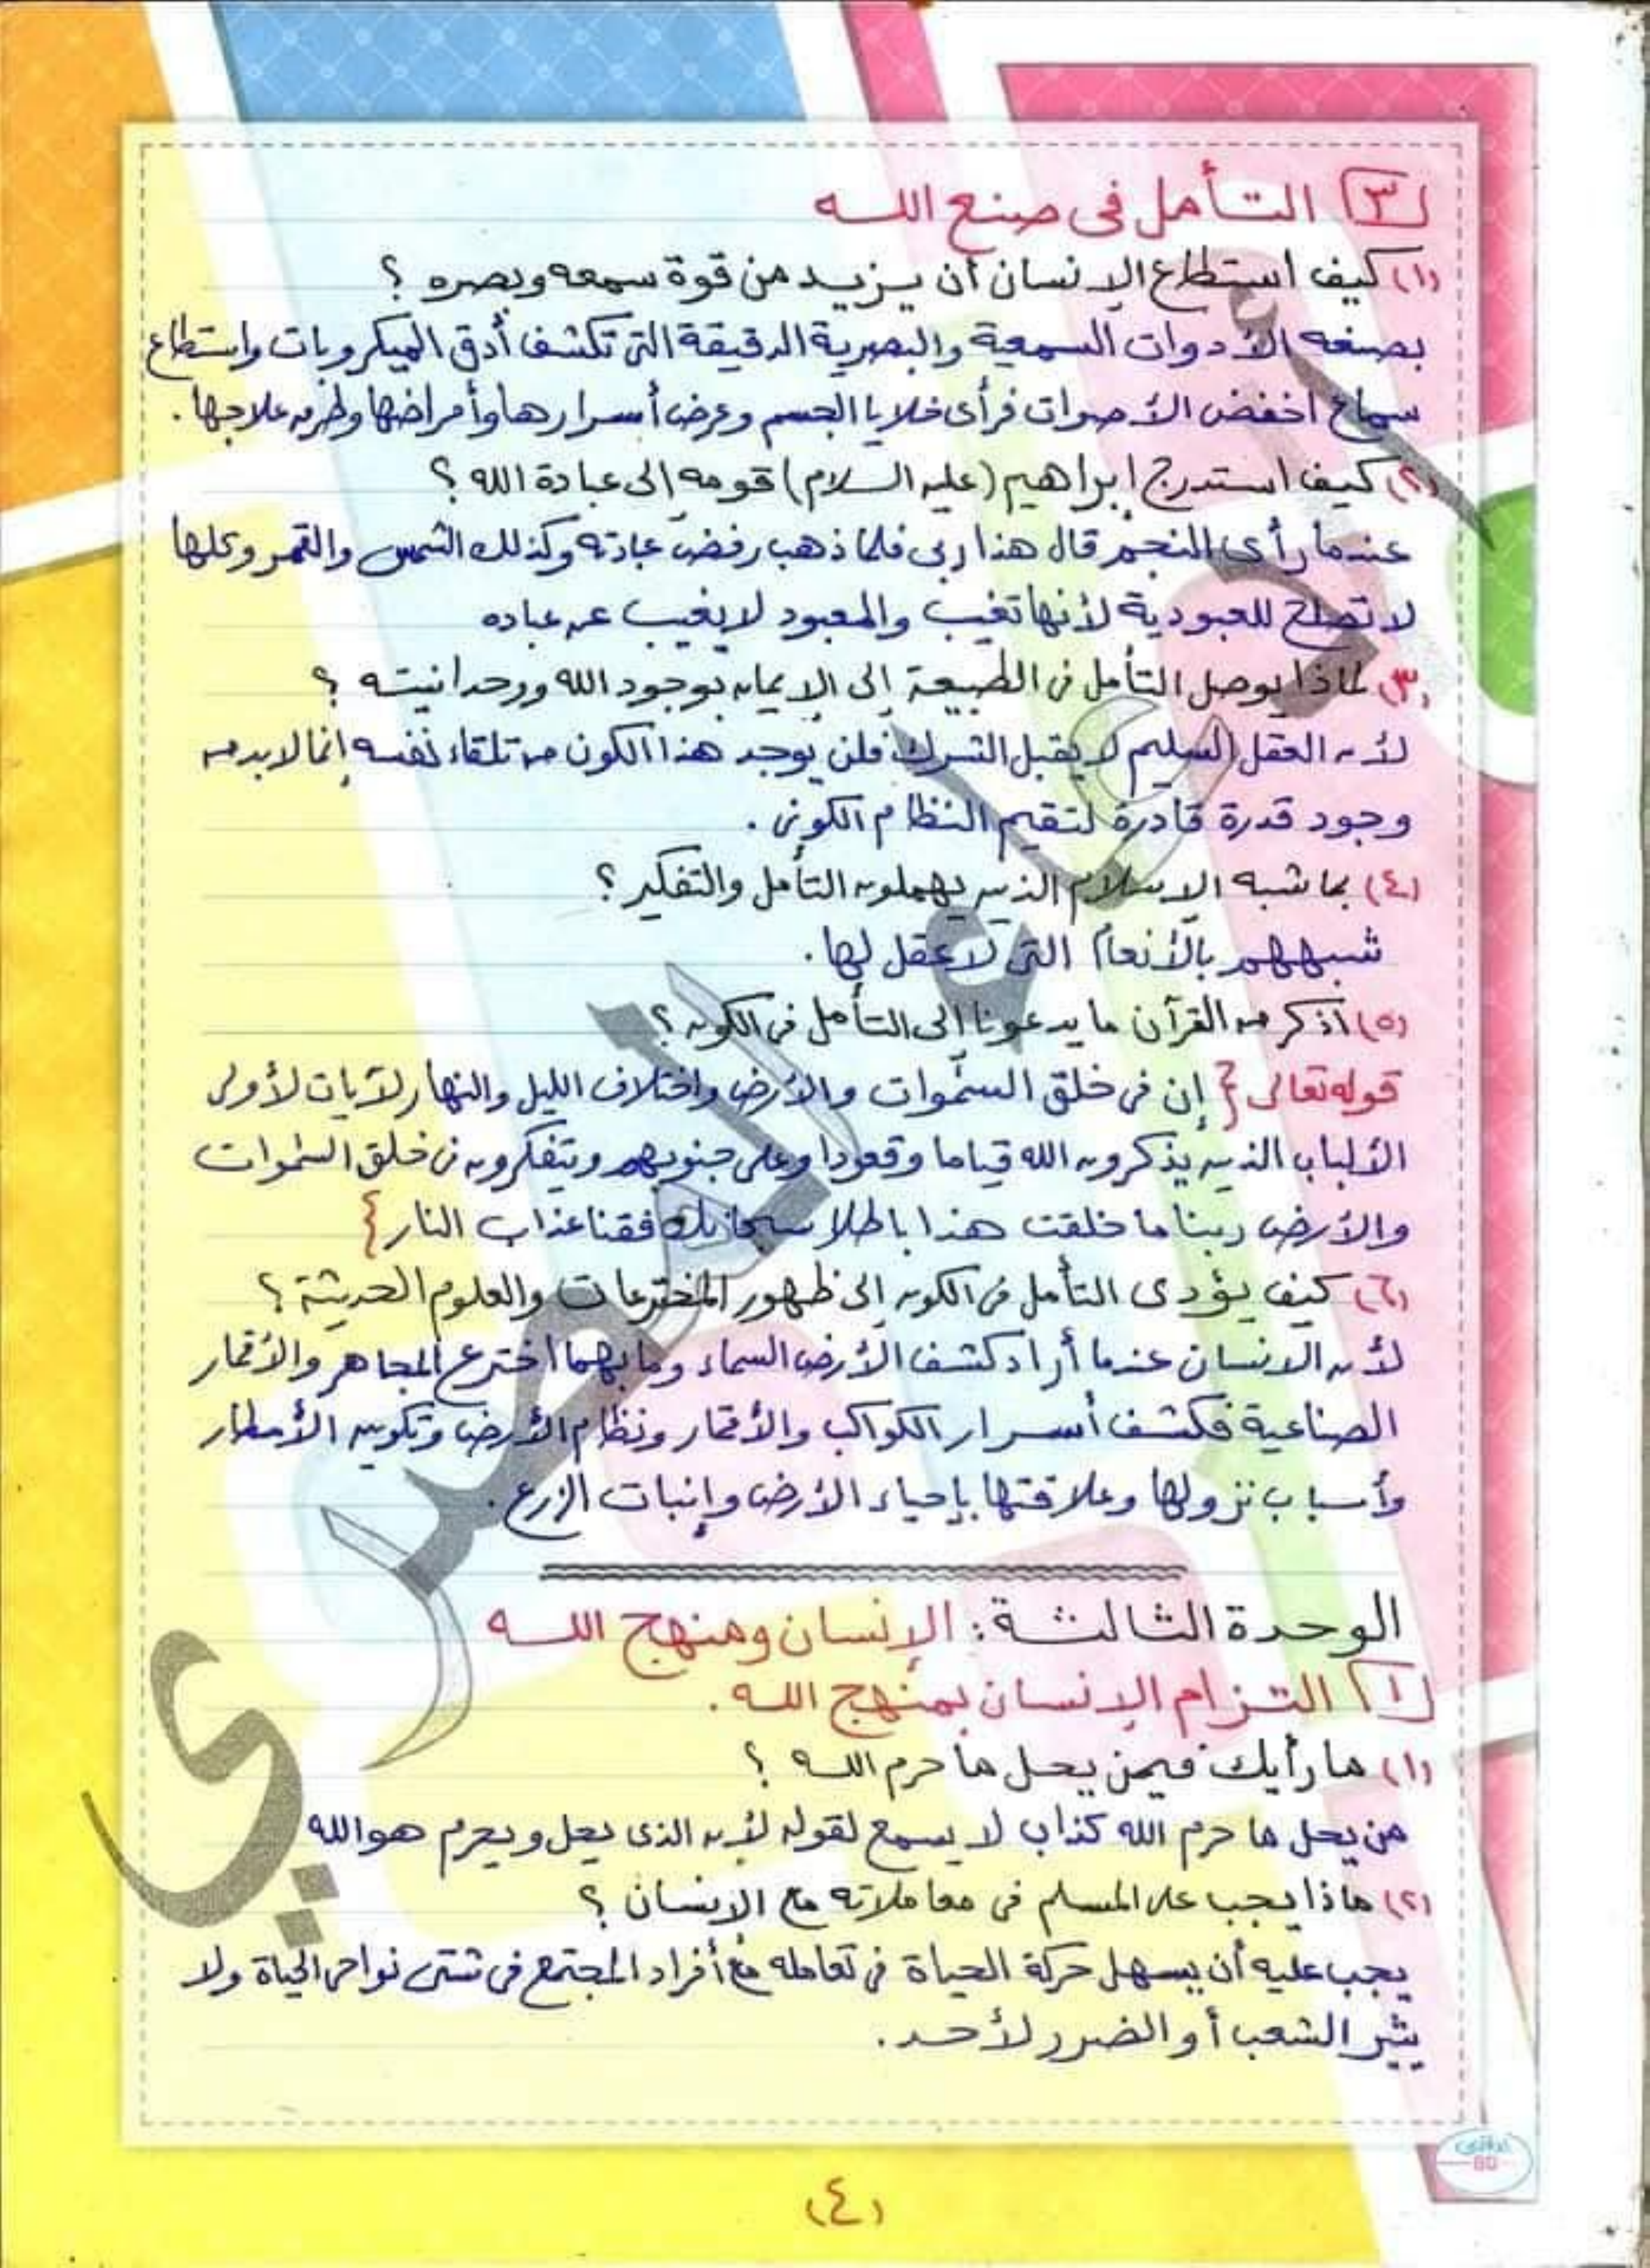 ٣ التأمل فى صنع الله
(١) كيف استطاع الإنسان أن يزيد من قوة سمعه وبصره ؟
بصنعه الأدوات السمعية والبصرية الدقيقة التى تكشف أدق الميكروبات واستطاع
سماع اخفض الأصوات فرأى خلايا الجسم وعرض أسرارها وأمراضها وطرق علاجها .
(٢) كيف استدرج إبراهيم (عليه السلام) قومه إلى عبادة الله ؟
عندما رأى النجم قال هذا ربى فلما ذهب رفض عبادته وكذلك الشمس والقمر وكلها
لا تصلح للعبودية لأنها تغيب والمعبود لا يغيب عن عباده
(٣) لماذا يوصل التأمل فى الطبيعة إلى الإيمان بوجود الله ووحدانيته ؟
لأن العقل السليم لا يقبل الشرك فلن يوجد هذا الكون من تلقاء نفسه إنما لابد من
وجود قدرة قادرة لتقيم النظام الكونى .
(٤) بما شبه الإسلام الذين يهملون التأمل والتفكير ؟
شبههم بالأنعام التى لا عقل لها .
(٥) أذكر من القرآن ما يدعونا إلى التأمل فى الكون ؟
قوله تعالى { إن فى خلق السموات والأرض واختلاف الليل والنهار لآيات لأولى
الألباب الذين يذكرون الله قياما وقعودا وعلى جنوبهم ويتفكرون فى خلق السموات
والأرض ربنا ما خلقت هذا باطلا سبحانك فقنا عذاب النار }
(٦) كيف يؤدى التأمل فى الكون إلى ظهور المخترعات والعلوم الحديثة ؟
لأن الانسان عندما أراد كشف الأرض السماء وما بهما اخترع المجاهر والأقمار
الصناعية فكشف أسرار الكواكب والأقمار ونظام الأرض وتكوين الأمطار
وأسباب نزولها وعلاقتها بإحياء الأرض وإنبات الزرع .
الوحدة الثالثة : الإنسان ومنهج الله
١ التزام الإنسان بمنهج الله .
(١) ما رأيك فيمن يحل ما حرم الله ؟
من يحل ما حرم الله كذاب لا يسمع لقوله لأن الذى يحل ويحرم هو الله
(٢) ماذا يجب على المسلم فى معاملاته مع الإنسان ؟
يجب عليه أن يسهل حركة الحياة فى تعامله مع أفراد المجتمع فى شتى نواحى الحياة ولا
يثير الشعب أو الضرر لأحد .
(٤)